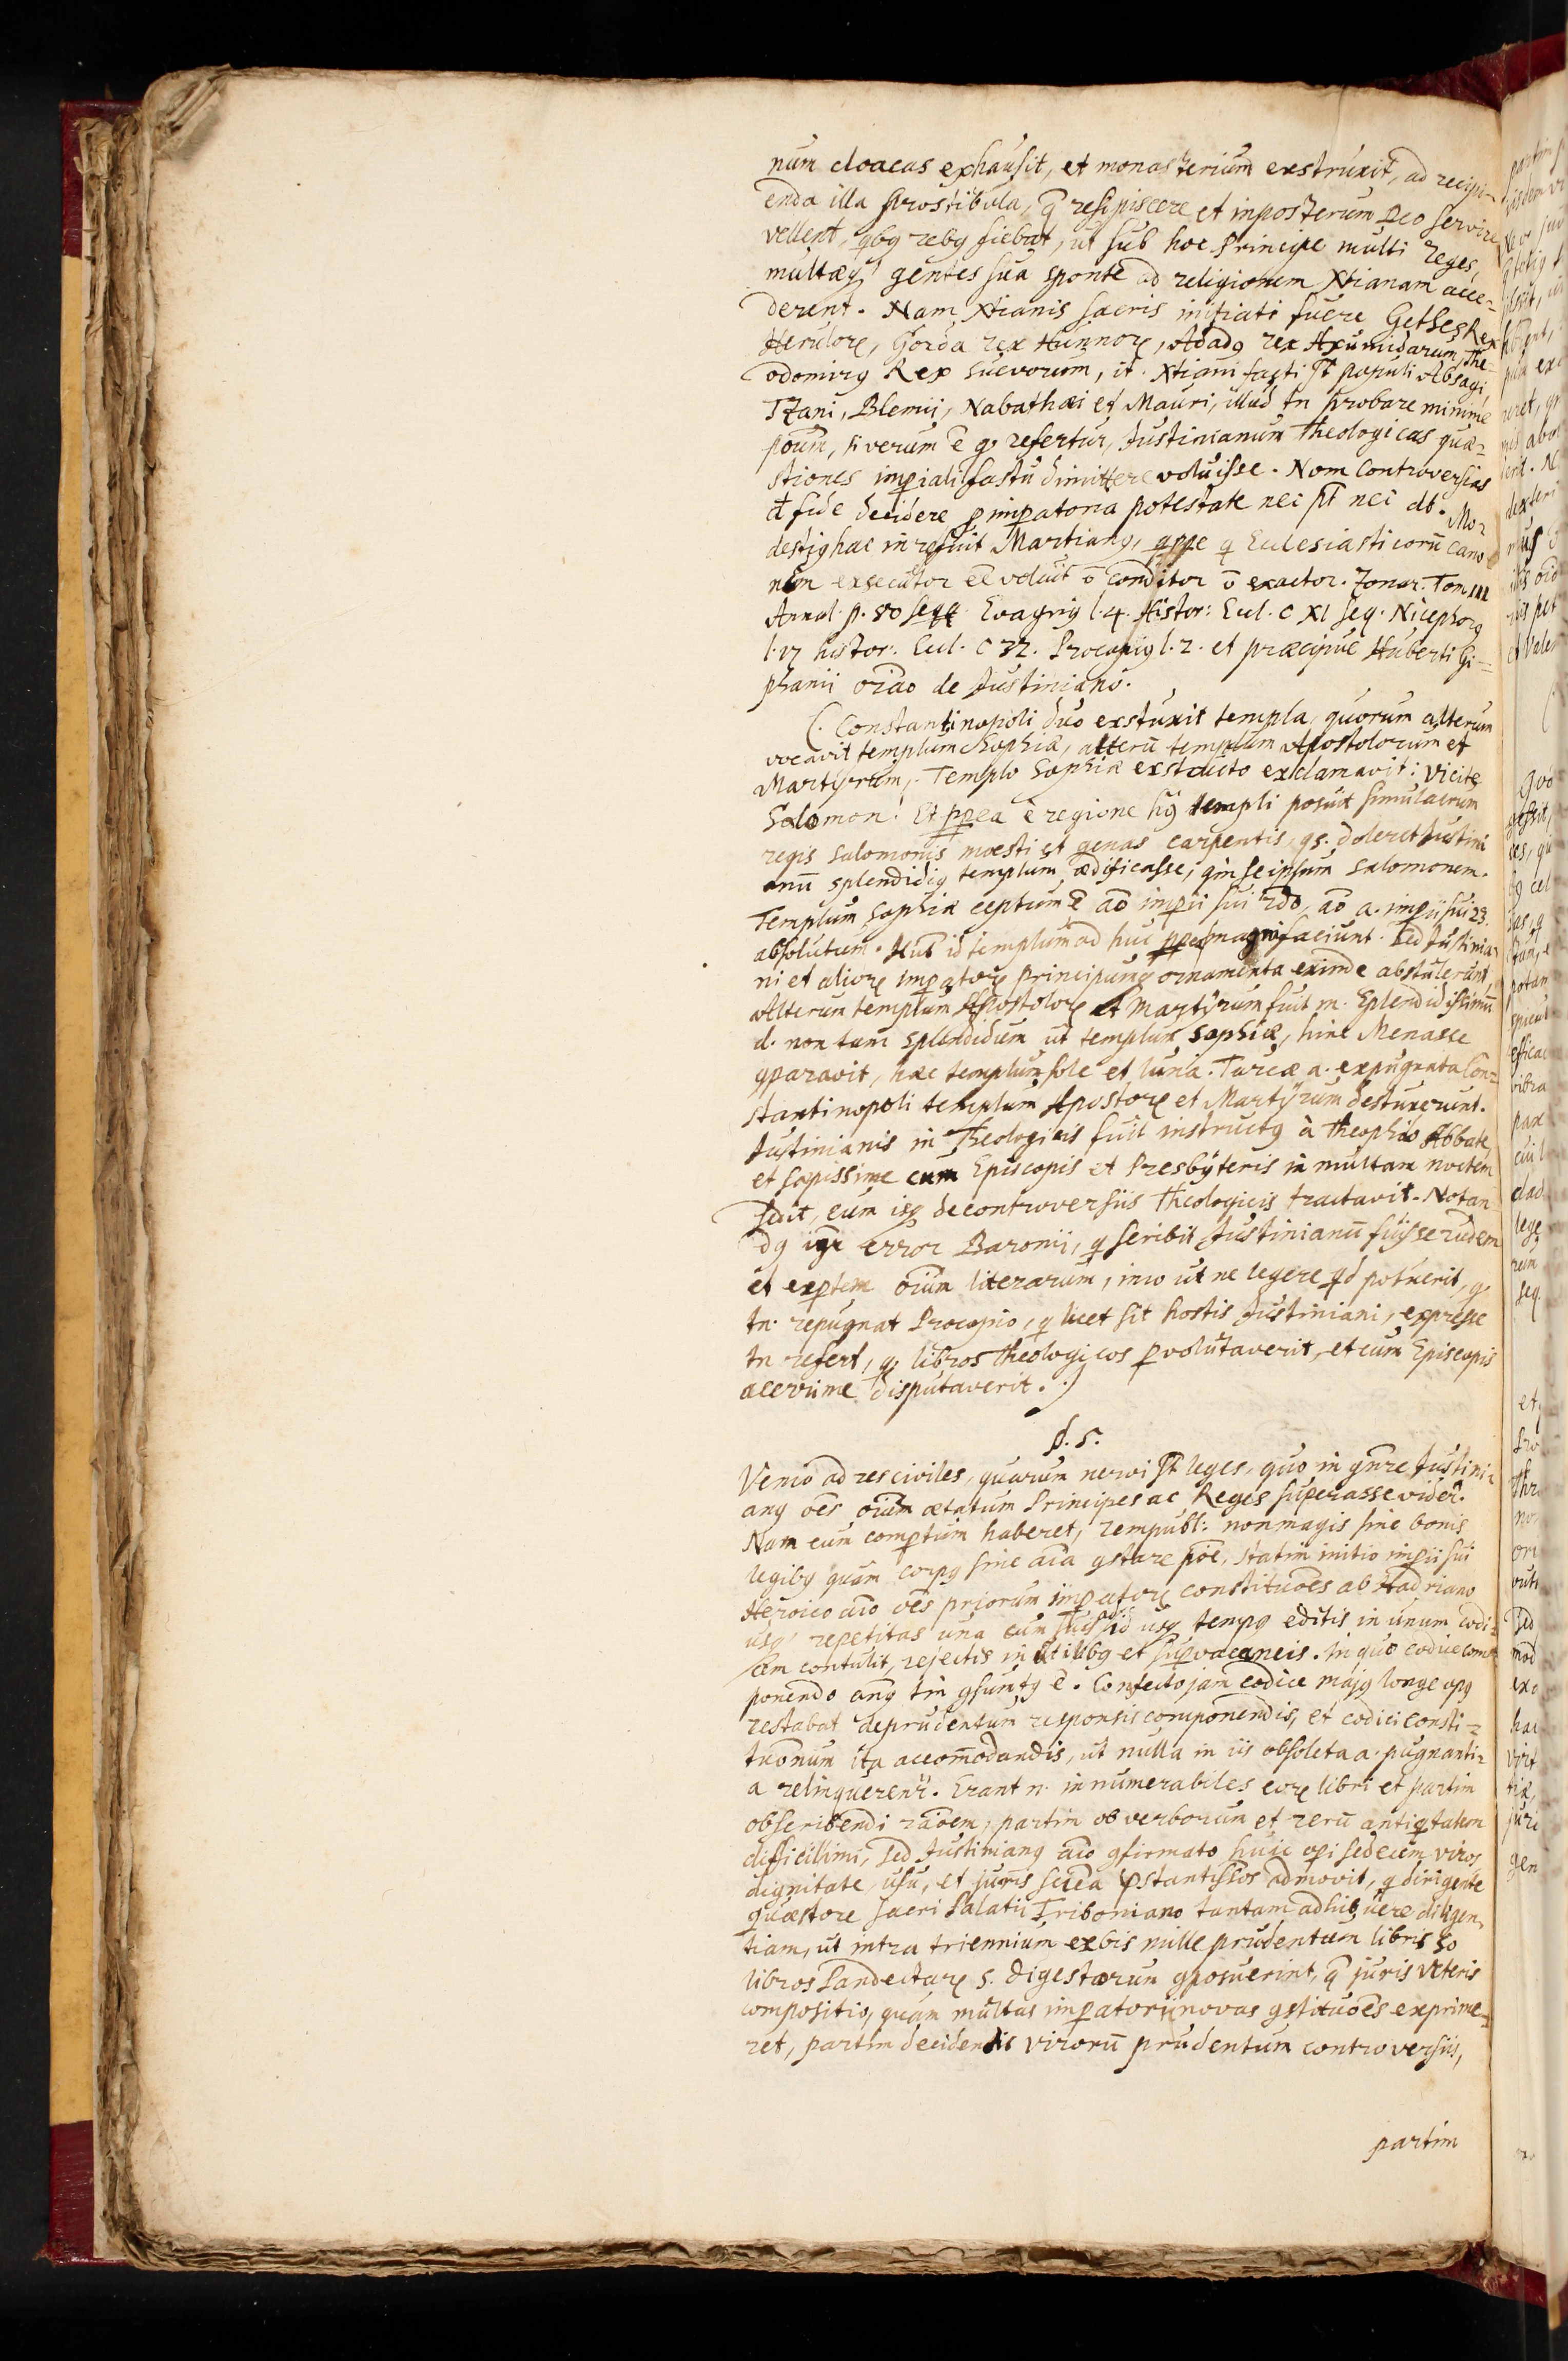 num cloacas exhausit, et monasterium exstruxit, ad recipi-
enda illa prostibula, q̄ resipiscere et inposterum Deo servire
vellent, qbq rebq fiebat, ut sub hoc Principe multi Reges,
multaeq gentes sua sponte ad religionem Xtianam acce-
derent. Nam Xtianis sacris initiati fuere Gethes Rex
Herulorꝝ, Gorda rex Hunnorꝝ, Adadq rex Axumidarum, The-
odomirq Rex Suevorum, it. Xtiani facti s̄t populi Absagi
Tzani, Blemii, Nabathaei et Mauri, illud tn probare minime
poūm, si verum ē qꝫ refertur, Justinianum Theologicas quae-
stiones imꝑiali fastu dimittere voluisse. Nam controversias
d fide decidere ꝑ imꝑatoria potestate nec pt nec db. Mo-
destiq hac in re fuit Martianq, qppe q Ecclesiasticorū cano-
num exsecutor eē voluit ō conditor ō exactor. Zonar. Tom III
Annal. p. 80 seqq. Evagriq l. 4. Histor: Eccl. C XI seq. Nicephorq
l. 17 histor: Eccl. C 32. Procopiq l. 2. et praecipue Huberti Gi-
phanii orāo de Justiniano.
(. Constantinopoli duo exstuxit templa, quorum alterum
vocavit templum Sophiae, alterū templum Apostolorum et
Martyrum. Templo Sophiae exstructo exclamavit: Vici te
Salomon! Et ꝓꝑea e regione hq templi posuit simulacrum
regis Salomonis moesti et genas carpentis, qs. doleret Justini
anū splendidiq templum aedificasse, qm se ipsum Salomonem.
Templum Sophiae ceptum ē aō imꝑii sui 2do, aō a. imꝑii sui 23.
absolutum. Hub id templum ad huc magni faciunt. Sed Justinia-
ni et aliorꝝ Imꝑatorꝝ principumq ornamenta exinde abstulerunt
Alterum templum Apostolorꝝ et Martyrum fuit m. Splendidissimū
d. non tam splendidum ut templum Sophiae, hinc Menasse
qparavit, haec templum sole et luna. Turcae a. expugnata Con-
stantinopoli templum Apostorꝝ et Martyrum destuxerunt.
Justinianis in Theologicis fuit instructq à Theophilo Abbate
et sapissime cum Episcopis et Presbyteris in multam noctem
sedit, cum isq de controversiis Theologicis tractavit. Notan-
dq igr error Baronii, q scribit Justinianū fuisse rudem
et exꝑtem oīum literarum, imo ut ne legere qd potuerit, qꝫ
tn. repugnat Procopio, q licet sit hostis Justiniani, expresse
tn refert, qꝫ libros theologicos ꝑvolutaverit, et cum Episcopis
acerrime disputaverit. .)
§. 5.
Venio ad res civiles, quarum nervi s̄t leges, quo in gn̄re Justini-
anq oēs oīum aetatum Principes ac Reges superasse videt.
Nam cum comꝑtum haberet, rempubl: non magis sine bonis
legibq quam corpq sine aīa qstare poē, statim initio imꝑii sui
Heroico aīo oēs priorum imꝑatorꝝ constitucōes ab Hadriano
usq repetitas una cum suis id usq tempq editis in unum codi-
cem contulit, rejectis inutilibq et suꝑvacaneis. In quo codice com-
ponendo anq tm qsumtq ē. Confecto jam codice majq longe opq
restabat de prudentum responsis componendis, et codici Consti-
tuōnum ita accom̄odandis, ut nulla in iis obsoleta a. pugnanti-
a relinquerent̄. Erant n. innumerabiles eorꝝ libri et partim
ob scribendi rāoem, partim ob verborum et rerū antiqtatem
difficillimi, Sed Justinianq aīo qfirmato huic oꝑi sedecim viros
dignitate usu, et juris sciēa ꝓstantissos admovit, q dirigente
quaestore sacri Palatii Triboniano tantam adhibuere diligen-
tiam, ut intra triennium ex bis mille prudentum libris 50
libros Pandectarꝝ s. digestorum qposuerint, q̄ juris veteris
compositio, quam multas imꝑatori novas qstitucōes exprime-
ret, partim decidendis virorū prudentum controversiis,
partim